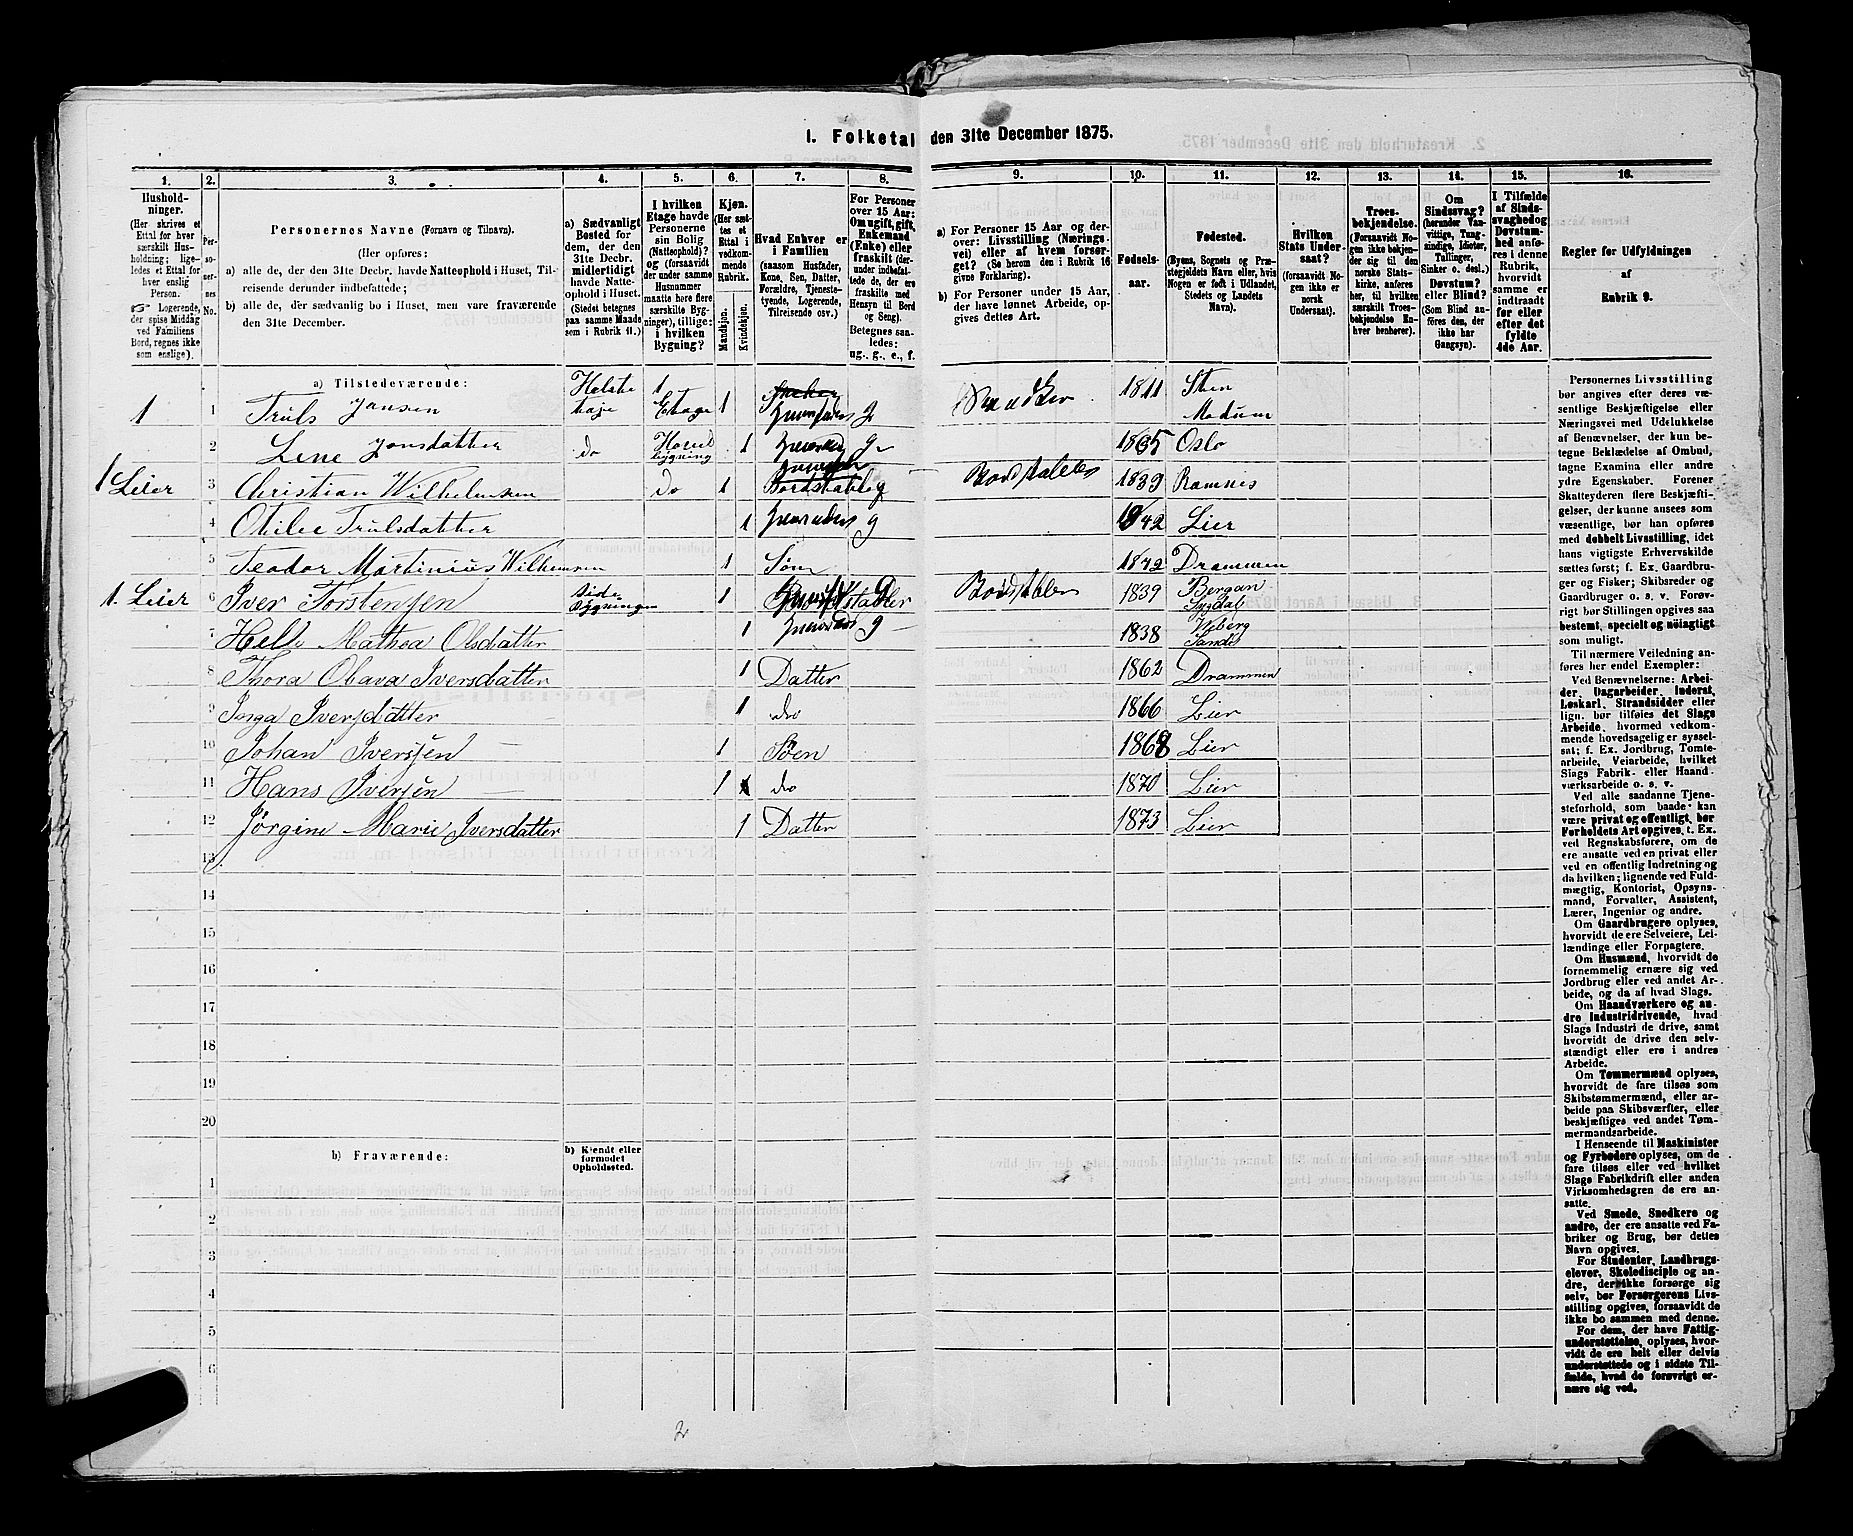 1. Folketal den 31te December 1875.
1. 2. 3. 4. 5. 6. 7. 8. 9. 10. 11. 12. 13. 14. 15. 16.
Hushold-
ninger.
(Her skrives et
Ettal for hver
særskilt Hus-
holdning; lige-
ledes et Ettal for
hver enslig
Person.
Logerende,
der spise Middag
ved Familiens
Bord, regnes ikke
som enslige).
Per-
so-
ner-
nes
No.
Personernes Navne (Fornavn og Tilnavn).
(Her opføres:
a) alle de, der den 31te Decbr. havde Natteophold i Huset, Til-
reisende derunder indbefattede;
b) alle de, der sædvanlig bo i Huset, men vare fraværende
den 31te December.
a) Sædvanligt
Bosted for
dem, der den
31te Decbr.
midlertidigt
havde Natte-
ophold i Huset.
(Stedet betegnes
paa samme Maade
som i Rubrik 11.)
I hvilken
Etage havde
Personerne
sin Bolig
(Natteophold)?
og (forsaavidt
der under samme
Husnummer
maatte høre flere
særskilte Byg-
ninger), tillige:
i hvilken
Bygning?
Kjøn.
(Her sæt-
tes et
Ettal i
vedkom-
mende
Rubrik.
Mandkjøn.
Kvindekjøn.
Hvad Enhver er
i Familien
(saasom Husfader,
Kone, Søn, Datter,
Forældre, Tjeneste-
tyende, Logerende,
Tilreisende osv.)
For Personer
over 15 Aar:
Om ugift, gift,
Enkemand
(Enke) eller
fraskilt (der-
under indbefat-
tede de, der ere
fraskilte med
Hensyn til Bord
og Seng).
Betegnes saa-
ledes:
ug., g., e., f.
a) For Personer 15 Aar og der-
over: Livsstilling (Nærings-
vei) eller af hvem forsør-
get? (Se herom den i Rubrik 16
givne Forklaring).
b) For Personer under 15 Aar,
der have lønnet Arbeide, op-
gives dettes Art.
Fødsels-
aar.
Fødested.
(Byens, Sognets og Præ-
stegjeldets Navn eller, hvis
Nogen er født i Udlandet,
Stedets og Landets
Navn).
Hvilken
Stats Under-
saat?
(forsaavidt No-
gen ikke er
norsk
Undersaat).
Troes-
bekjendelse.
(Forsaavidt No-
gen ikke bekjen-
der sig til den
norske Stats-
kirke, anføres
her, til hvilken
særskilt Troes-
bekjendelse En-
hver henhører).
Om
Sindssvag?
(herunder Van-
vittige, Tung-
sindige, Idioter,
Tullinger,
Sinker o. desl.)
Døvstum?
eller Blind?
(Som Blind an-
føres den, der
ikke har
Gangsyn).
I Tilfælde
af Sinds-
svaghed og
Døvstum-
hed anfø-
res i denne
Rubrik,
hvorvidt
samme er
indtraadt
før eller
efter det
fyldte
4de Aar.
Regler for Udfyldningen
af
Rubrik 9.
a) Tilstedeværende:
1 1 Truls Jansen 1 Etage 1 1811 Sten Modum
2 Lene Jonsdatter do 1 g 1835 Oslo
1 Leier 3 Christian Wilhelmsen do 1 g 1839 Ramnes
4 Otilee Trulsdatter 1 g 1842 Lier
5 Teodor Martinius Wilhemsen 1 Søn 1872 Drammen
1. Leier 6 Iver Torstensen Side Bygningen 1 1839
7 Mathea Olsdatter 1 g 1838
8 Thora Olava Iversdatter 1 Datter 1862 Drammen
9 Inga Iversdatter 1 do 1866 Lier
10 Johan Iversen 1 Søen 1868 Lier
11 Hans Iversen 1 do 1870 Lier
12 Jørgine Marie Iversdatter 1 Datter 1873 Lier
13
14
15
16
17
18
19
20
b) Fraværende:
b) Kjendt eller
formodet
Opholdssted.
1
2
3
4
5
6
Personernes Livsstilling
bør angives efter deres væ-
sentlige Beskjæftigelse eller
Næringsvei med Udelukkelse
af Benævnelser, der kun be-
tegne Beklædelse af Ombud,
tagne Examina eller andre
ydre Egenskaber. Forener
Skatteyderen flere Beskjæfti-
gelser, der kunne ansees som
væsentlige, bør han opføres
med dobbelt Livsstilling, idet
hans vigtigste Erhvervskilde
sættes først; f. Ex. Gaardbru-
ger og Fisker; Skibsreder og
Gaardbruger o. s. v. Forøv-
rigt bør Stillingen opgives saa
bestemt, specielt og nøiagtigt
som muligt.
Til nærmere Veiledning an-
føres her endel Exempler:
Ved Benævnelserne: Arbei-
der, Dagarbeider, Inderst,
Løskarl, Strandsidder eller
lign. bør tilføies det Slags
Arbeide, hvormed vedkom-
mende hovedsagelig er syssel-
sat; f. Ex. Jordbrug, Tomte-
arbeide, Veiarbeide, hvilket
Slags Fabrik- eller Haand-
værksarbeide o. s. v.
Ved alle saadanne Tjene-
steforhold, som baade kan
være privat og offentligt, bør
Forholdets Art opgives, t. Ex.
ved Regnskabsførere, om de
ere ansatte ved en privat eller
ved en offentlig Indretning og
da hvilken; lignende ved Fuld-
mægtig, Kontorist, Opsyns-
mand, Forvalter, Assistent,
Lærer, Ingeniør og andre.
Om Gaardbrugere oplyses,
hvorvidt de ere Selveiere, Lei-
lændinge eller Forpagtere.
Om Husmænd, hvorvidt de
fornemmelig ernære sig ved
Jordbrug eller ved andet Ar-
beide, og da af hvad Slags.
Om Haandværkere og an-
dre Industridrivende, hvad
Slags Industri de drive, samt
hvorvidt de drive den selv-
stændigt eller ere i andres
Arbeide.
Om Tømmermænd oplyses,
hvorvidt de fare tilsøs som
Skibstømmermænd, eller ar-
beide paa Skibsværfter, eller
beskjæftiges ved andet Tøm-
mermandsarbeide.
I Henseende til Maskinister
og Fyrbødere oplyses, om de
fare tilsøs eller ved hvilket
Slags Fabrikdrift eller anden
Virksomhedsgren de ere an-
satte.
Ved Smede, Snedkere og
andre, der ere ansatte ved Fa-
briker og Brug, bør dettes
Navn opgives.
For Studenter, Landbrugs-
elever, Skoledisciple og an-
dre, der ikke forsørge sig
selv, bør Forsørgerens Livs-
stilling opgives, forsaavidt de
ikke bo sammen med denne.
For dem, der have Fattig-
understøttelse, oplyses, hvor-
vidt de ere helt eller delvis
understøttede og i sidste Til-
fælde, hvad de forøvrigt er-
nære sig ved.